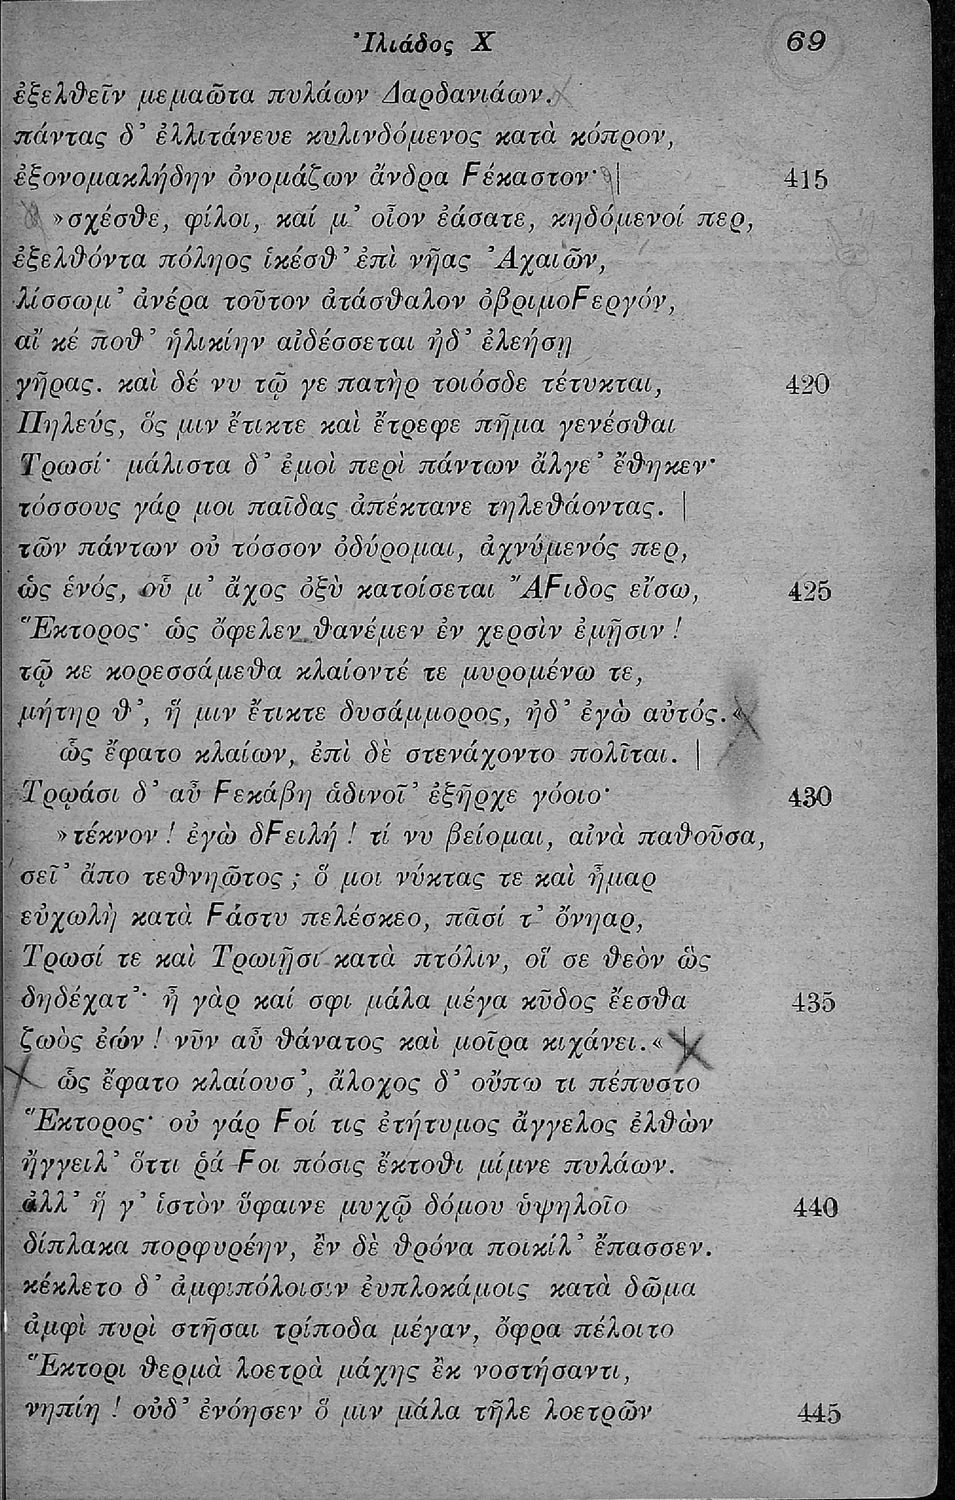 Ἰλιάδος Χ 69
ἐξελθεῖν μεμαῶτα πυλάων Δαρδανιάων.
πάντας δ' ἐλλιτάνευε κυλινδόμενος κατὰ κόπρον,
ἐξονομακλήδην ὀνομάζων ἄνδρα Ϝέκαστον· 415
»σχέσθε, φίλοι, καί μ' οἶον ἐάσατε, κηδόμενοί περ,
ἐξελθόντα πόληος ἱκέσθ' ἐπὶ νῆας Ἀχαιῶν,
λίσσωμ' ἀνέρα τοῦτον ἀτάσθαλον ὀβριμοϜεργόν,
αἴ κέ ποθ' ἡλικίην αἰδέσσεται ἠδ' ἐλεήσῃ
γῆρας. καὶ δέ νυ τῷ γε πατὴρ τοιόσδε τέτυκται, 420
Πηλεύς, ὅς μιν ἔτικτε καὶ ἔτρεφε πῆμα γενέσθαι
Τρωσί· μάλιστα δ' ἐμοὶ περὶ πάντων ἄλγε' ἔθηκεν·
τόσσους γάρ μοι παῖδας ἀπέκτανε τηλεθάοντας. |
τῶν πάντων οὐ τόσσον ὀδύρομαι, ἀχνύμενός περ,
ὡς ἑνός, οὗ μ' ἄχος ὀξὺ κατοίσεται ἌϜιδος εἴσω, 425
Ἕκτορος· ὡς ὄφελεν θανέμεν ἐν χερσὶν ἐμῇσιν!
τῷ κε κορεσσάμεθα κλαίοντέ τε μυρομένω τε,
μήτηρ θ', ἥ μιν ἔτικτε δυσάμμορος, ἠδ' ἐγὼ αὐτός.«
ὣς ἔφατο κλαίων, ἐπὶ δὲ στενάχοντο πολῖται. |
Τρῳάσι δ' αὖ Ϝεκάβη ἁδινοῖ' ἐξῆρχε γόοιο· 430
»τέκνον! ἐγὼ δϜειλή! τί νυ βείομαι, αἰνὰ παθοῦσα,
σεῖ' ἄπο τεθνηῶτος; ὅ μοι νύκτας τε καὶ ἦμαρ
εὐχωλὴ κατὰ Ϝάστυ πελέσκεο, πᾶσί τ' ὄνηαρ,
Τρωσί τε καὶ Τρωιῇσι κατὰ πτόλιν, οἵ σε θεὸν ὣς
δηδέχατ'· ἦ γὰρ καί σφι μάλα μέγα κῦδος ἔεσθα 435
ζωὸς ἐών! νῦν αὖ θάνατος καὶ μοῖρα κιχάνει.«
ὣς ἔφατο κλαίουσ', ἄλοχος δ' οὔπω τι πέπυστο
Ἕκτορος· οὐ γάρ Ϝοί τις ἐτήτυμος ἄγγελος ἐλθὼν
ἤγγειλ' ὅττι ῥά Ϝοι πόσις ἔκτοθι μίμνε πυλάων.
ἀλλ' ἥ γ' ἱστὸν ὕφαινε μυχῷ δόμου ὑψηλοῖο 440
δίπλακα πορφυρέην, ἒν δὲ θρόνα ποικίλ' ἔπασσεν.
κέκλετο δ' ἀμφιπόλοισιν ἐυπλοκάμοις κατὰ δῶμα
ἀμφὶ πυρὶ στῆσαι τρίποδα μέγαν, ὄφρα πέλοιτο
Ἕκτορι θερμὰ λοετρὰ μάχης ἒκ νοστήσαντι,
νηπίη! οὐδ' ἐνόησεν ὅ μιν μάλα τῆλε λοετρῶν 445